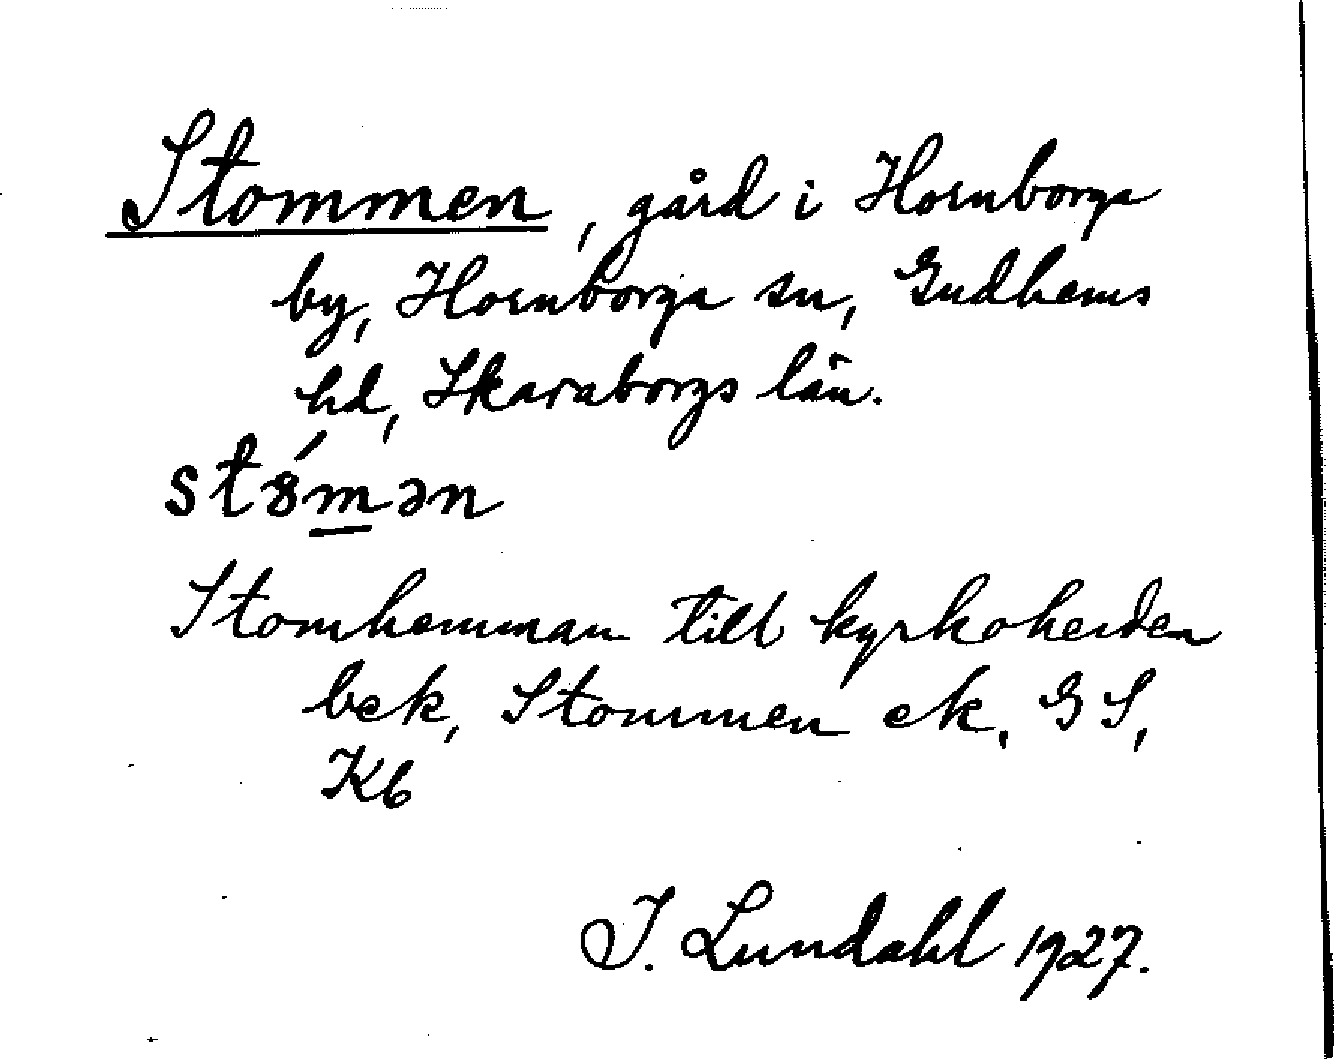 Stommen, gård i Hornborga
by, Hornborga sn, Gudhems
hd, Skaraborgs län.
stȣ́mən
Stomhemman till kyrkoherden
bek, Stommen ek. GS,
Kb
I. Lundahl 1927.